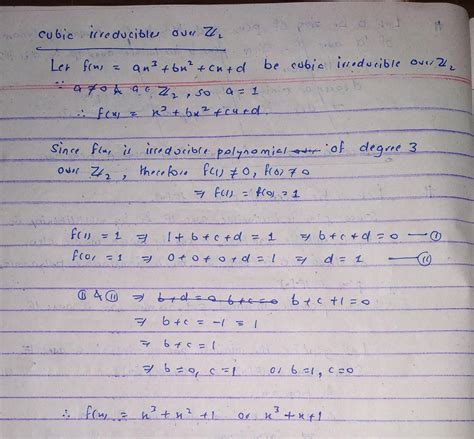 cubic irreducibles over ℤ₂
Let f(x) = ax³+bx²+cx+d be cubic irreducible over ℤ₂
∵ a≠0 & a∈ℤ₂, so a=1
∴ f(x) = x³+bx²+cx+d.
Since f(x) is irreducible polynomial of degree 3
over ℤ₂, therefore f(1)≠0, f(0)≠0
⇒ f(1) = f(0) = 1
f(1) = 1 ⇒ 1+b+c+d = 1 ⇒ b+c+d=0 —(i)
f(0) = 1 ⇒ 0+0+0+d=1 ⇒ d=1 —(ii)
(i) & (ii) ⇒ b+d=0 b+c=0 b+c+1=0
⇒ b+c = -1 = 1
⇒ b+c=1
⇒ b=0, c=1 or b=1, c=0
∴ f(x) = x³+x²+1 or x³+x+1